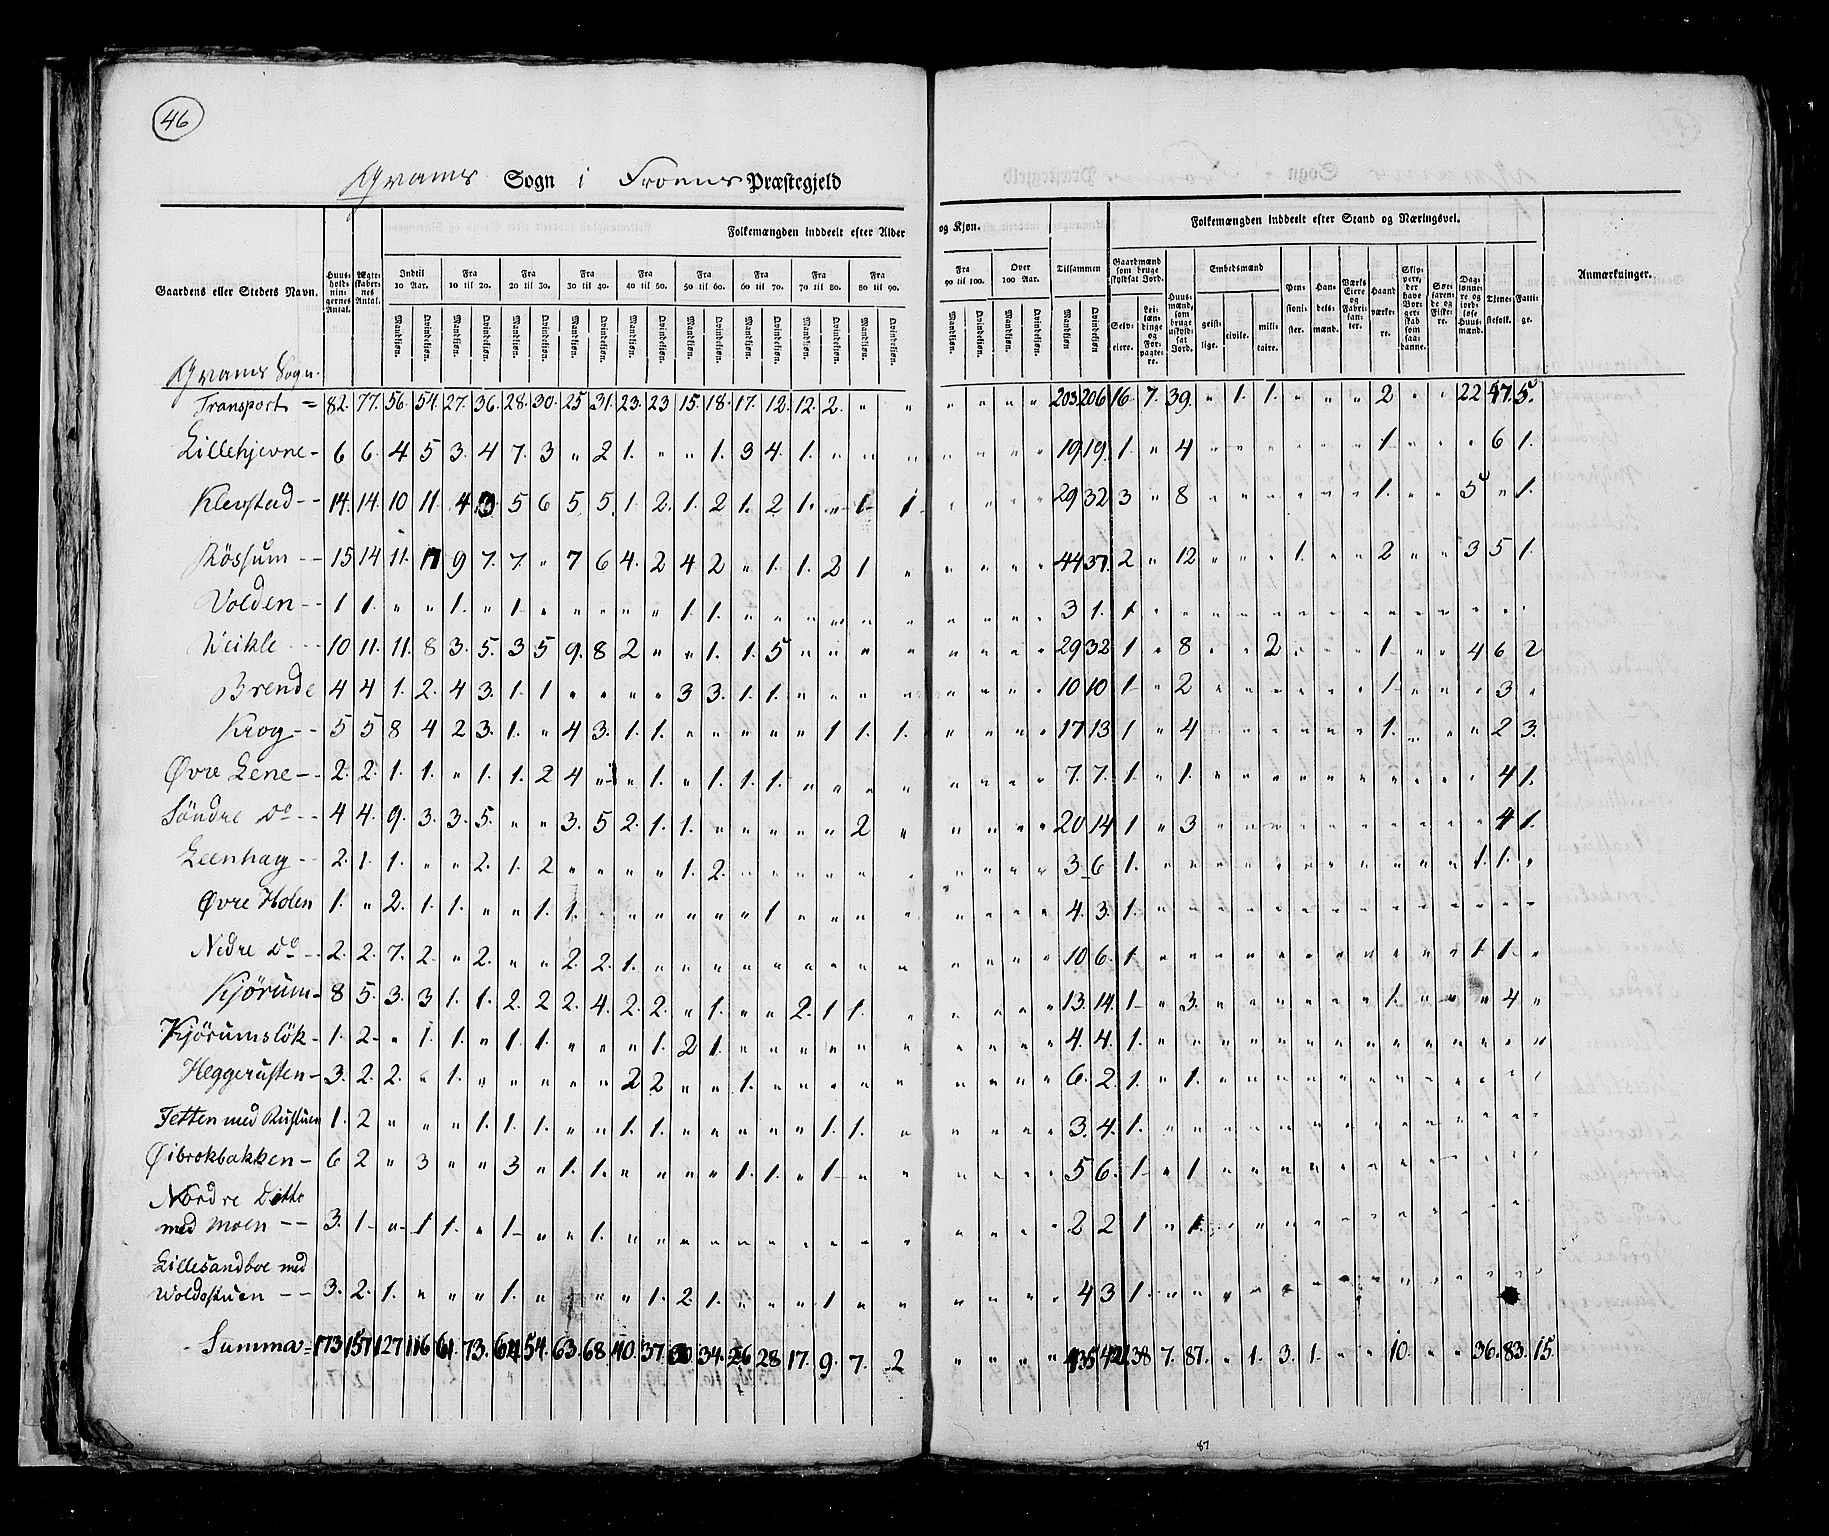 46
Sogn i Præstegjeld
Gaardens eller Stedets Navn.
Huusholdningernes Antal.
Ægteskabernes Antal.
Folkemængden inddeelt efter Alder og Kjøn.
Indtil 10 Aar. Fra 10 til 20. Fra 20 til 30. Fra 30 til 40. Fra 40 til 50. Fra 50 til 60. Fra 60 til 70. Fra 70 til 80. Fra 80 til 90. Fra 90 til 100. Over 100 Aar. Tilsammen
Mandkjøn. Qvindekjøn.
Folkemængden inddeelt efter Stand og Næringsvei.
Gaardmænd som bruge skyldsat Jord.
Selveiere.
Leilændinge og Forpagtere.
Huusmænd, som bruge uskyldsat Jord.
Embedsmænd
geistlige. civile. militaire.
Pensionister.
Handelsmænd.
Værks Eiere og Fabrikanter.
Haandværkere.
Skippere, der have Borgerskab som saadanne.
Søefarende og Fiskere.
Daglønnere og jordløse Huusmænd.
Tjenestefolk.
Fattige.
Anmærkninger.
Sogn.
Transport = 82. 77. 56. 54. 27. 36. 28. 30. 25 31. 23. 23 15. 18. 17. 12. 12. 2. " " 203 206 16. 7. 39. " 1. 1. " " " 2 " " 22 47. 5.
Lillehjevne - 6 6. 4 5 3. 4 7. 3 " 2 1. " " 1. 3 4. 1. " " " " " " " 19 19. 1. " 4 " " " " " " 1 " " " 6 1.
Klevstad - - 14. 14. 10 11 4 5 6 5 5. 1 2. 1. 2 1. 2 1. " 1 1 " " " " 29 32 3 " 8 " " " " " " 1. " " 5 " 1.
Røssum - - 15 14 11. 9 7. 7. " 7 6 4. 2 4 2 " 1. 1. 2 1 " " " " " 44 37. 2 " 12 " " " 1. " " 2 " " 3 5 1.
Volden - - 1 1. " " 1. " 1 " " " " " 1 1. " " " " " " " " " " 3 1. 1 " " " " " " " " " " " " " "
Weikle - - - 10 11. 11. 8 3. 5. 3 5 9. 8 2 " " 1. 1. 5 " " " " " " " " 29 32 1 " 8 " " 2 " " " 1 " " 4 6 2
Brende 4 4 1. 2. 4 3. 1. 1 " " " " 3 3. 1. 1. " " " " " " " " 10 10 1 " 2 " " " " " " 1 " " " 3 "
Krog - - 5 5 8 4 2 3. 1. " 4 3. 1. 1. " " " " " 1 1. 1. " " " " 17 13 1 " 4 " " " " " " 1. " " " 2 3.
Øvre Lene - - 2. 2. 1. 1. " 1. 1. 2 4 " " 1. " 1. 1. 1. " " " " " " " " 7. 7. 1. " 1. " " " " " " " " " " 4 1.
Søndre Do - - 4 4. 9. 3. 3. 5. " " 3. 5 2. 1. 1. " " " " " 2 " " " " " 20 14 1 " 3 " " " " " " " " " " 4 1.
Leenhag - - 2. 1. 1. " " 2. 1. 2 " " " " 1. 2. " " " " " " " " " " 3 6 1. " " " " " " " " " " " 1. 1. "
Øvre Holen 1. " 2. 1. 1. " " 1. 1. " " " " " " 1 " " " " " " " " 4. 3. 1. " " " " " " " " " " " " " "
Nedre Do - - 2. 2. 7. 2 " 2. " " 2. 2. 1. " " " " " " " " " " " " " 10 6. 1 " " " " " " " " " " " 1 1. "
Kjørum - 8 5. 3. 3 1. 1. 2. 2 2. 4. 2. 2. " 1. " " 2. 1 1. " " " " " 13. 14. 1 " 3. " " " " " " 1. " " " 4 "
Kjørumsløk - 1. 2 " 1. 1. " 1. 1. " " " 1. 2 1. " " " " " " " " " " 4. 4. 1. " " " " " " " " " " " " " "
Heggerusten - 3. 2. 2. " 1. " " " " " 2 2. " " 1. " " " " " " " " " 6. 2. 1. " 1. " " " " " " " " " " " "
Tetten med Rustuen 1. 2 " " " 1. 1. 1. " " 1. 1. " " " " " 1. 1. " " " " " 3. 4. 1. " " " " " " " " " " " " " "
Øibrokbakken - 6 2 " 3 " " 3 " 1. 1. " " " " 1. 1. " 1 " " " " " " 5 6. 1. " 1 " " " " " " " " " " " "
Nordre Ditto
med Moen - - 3. 1 " 1. 1. " 1 " " 1. " " " " " " " " " " " " " " 2 2. 1 " 1. " " " " " " " " " " " "
Lillesandboe med
Woldsstuen - - 3. 2. 1. " " " 1. " " " " 1. 2. 1. " " " 1 " " " " " " 4 3 1. " " " " " " " " " " " "
Summa = 173. 157 127 116 61. 73. 64 54. 63. 68. 40. 37. 30 34. 26 28 17. 9. 7. 2 " " " " 435 421. 38 7. 87. " 1. 3. 1. " " 10. " " 36. 83. 15.
87